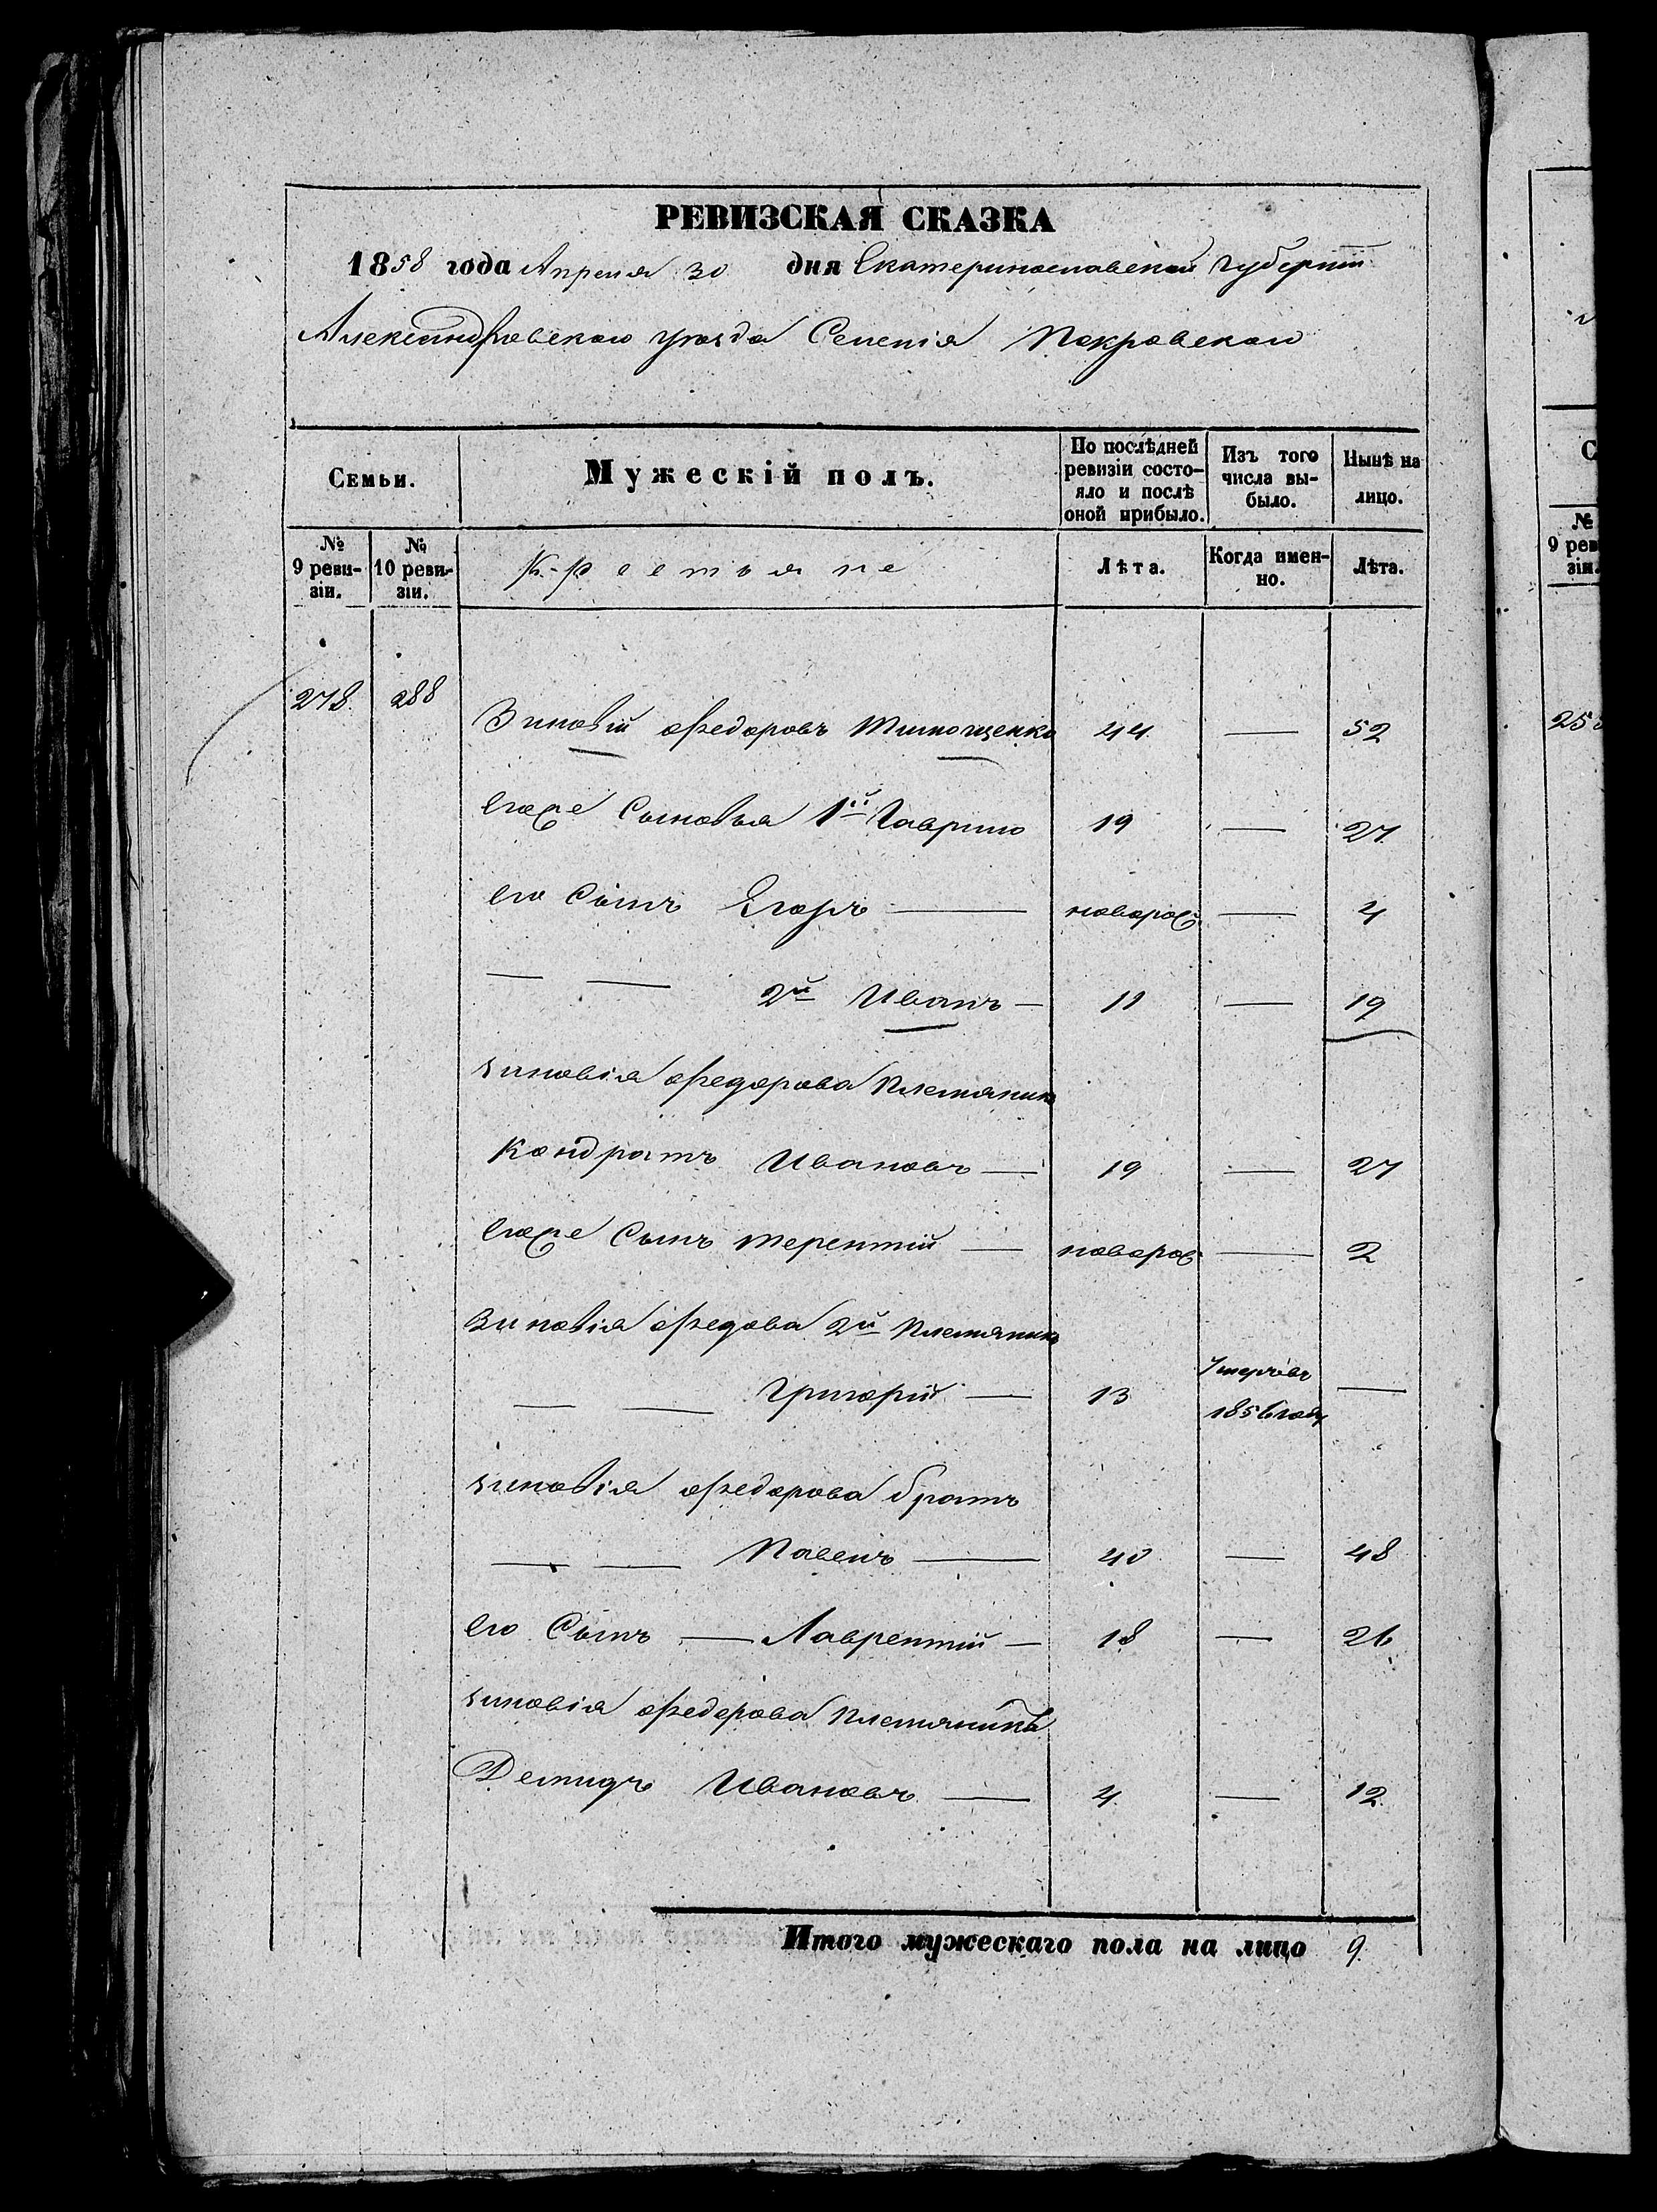 РЕВИЗСКАЯ СКАЗКА
1858 года Апреля 30 дня Екатеринославской Губерніи
Александровскаго уезда Селенія Покровскаго
Семьи.
Мужескій полъ.
По послѣдней ревизіи состо-
яло и послѣ
оной прибыло.
Изъ того
числа вы-
было.
Нынѣ на
лицо.
№
9 реви-
зіи.
№
10 реви-
зіи.
Крестьяне
Лѣта.
Когда имен-
но.
Лѣта.
278. 288
Зиновій Федоровъ Тимощенко 44 — 52
Егоже Сыновья 1й Гаврило 19 — 27.
Его Сынъ Егоръ — новорож. — 4
— — 2й Иванъ — 11 — 19
Зиновія Федорова Племяник
Кондратъ Ивановъ — 19 — 27
Егоже Сынъ Терентій — новорож — 2
Зиновія Федова 2й Племяник
— — Григорій — 13 Умеръ въ 1856 году —
Зиновія Федорова братъ
— — Павелъ — 40 — 48
Его Сынъ — Лаврентій — 18 — 26
Зиновія Федорова Племянникъ
Демидъ Ивановъ — 4. — 12.
Итого мужескаго пола на лицо 9.
С
№
9 рев
зіи.